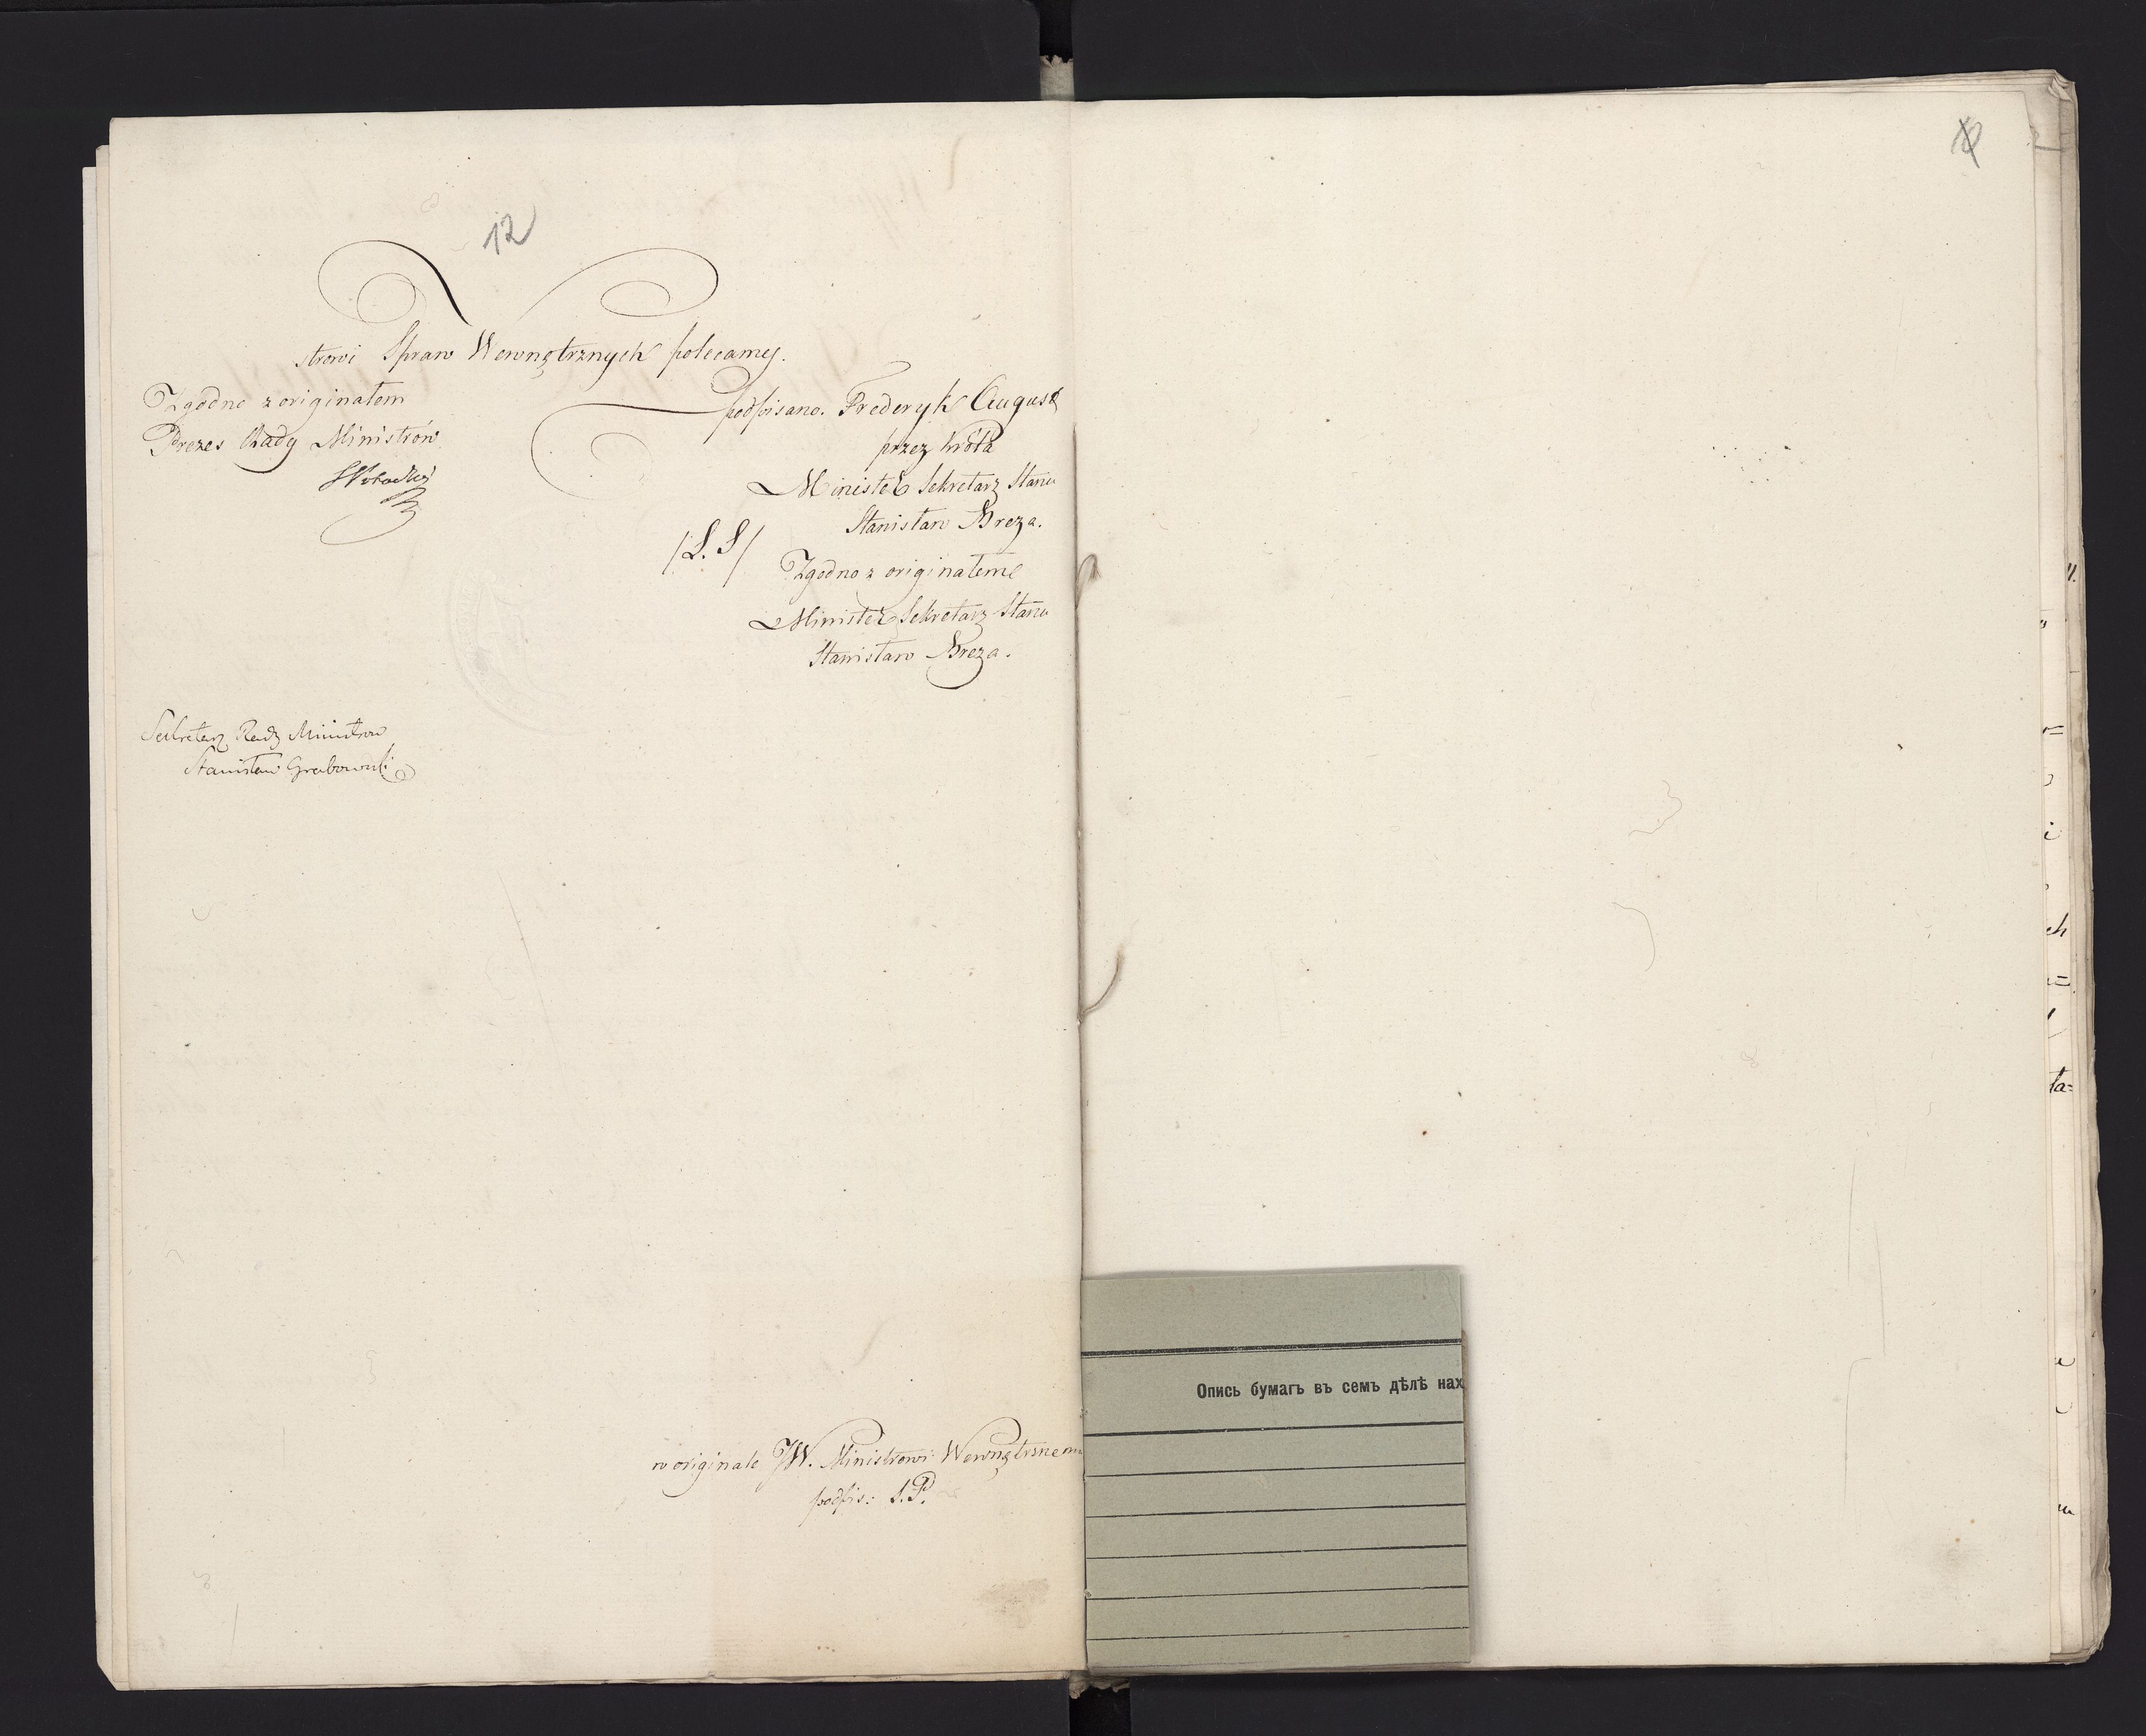 12
strowi Spraw Wewnętrznych polecamy.
Zgodno z originałem
Prezes Rady Ministrów
podpisano. Frederyk August
przez króla
Minister Sekretarz Stanu
Stanisław Breza.
/L. S/
Zgodno z originałem
Minister Sekretarz Stanu
Stanisław Breza.
Sekretarz Rady Ministrow
Stanisław Grabowski
w originale JW. Ministrowi Wewnętrznemu
podpis: S.P.
Опись бумагъ въ семъ дѣлѣ нах